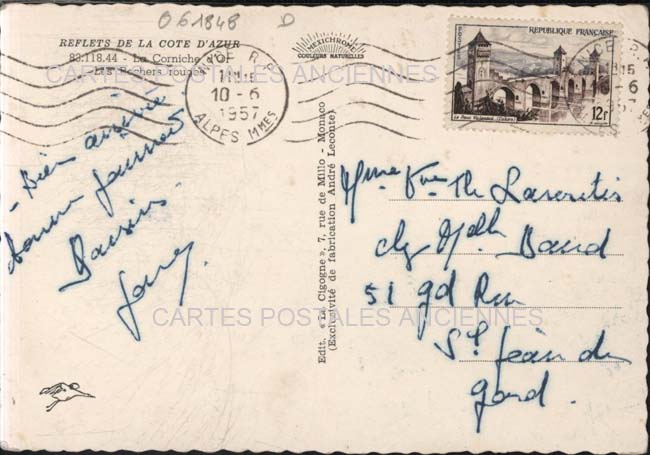 061848 D
REFLETS DE LA COTE D'AZUR
83.118.44 - La Corniche d'Or
Les Rochers rouges
CARTES POSTALES ANCIENNES
MEXICHROME
COULEURS NATURELLES
10-6
1957
ALPES Mmes
POSTES
REPUBLIQUE FRANÇAISE
Le Pont Valentré (Cahors)
12f
- Bien arrivée
bonne journée
Baisers
Edit. « La Cigogne », 7, rue de Millo - Monaco
(Exclusivité de fabrication André Leconte)
Mme Vve Th
chez Mlle
51 gd Rue
St Jean du
Gard.
CARTES POSTALES ANCIENNES